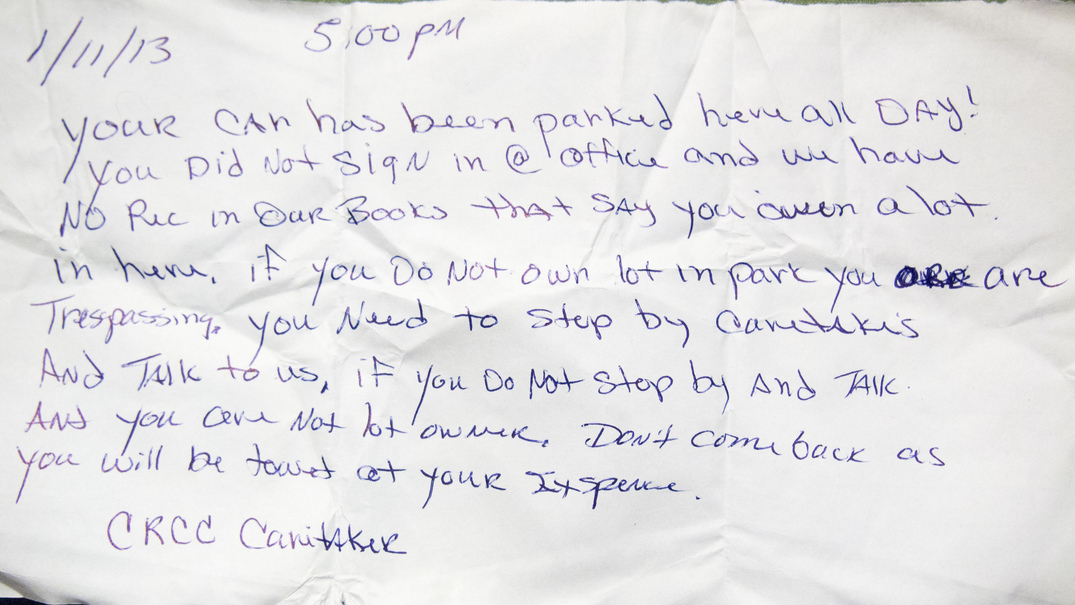 1/11/13 5:00 pm
Your car has been parked here all DAY!
You Did Not Sign in @ office and we have
No Rec in Our Books that SAY you owen a lot
in here, if you Do Not own lot in park you are
Trespassing, you Need to stop by Caritakis
And Talk to us, if you Do Not stop by And Talk
And you are Not lot owner, Don't come back as
you will be towet at your Ixspence.
CRCC Caritaker